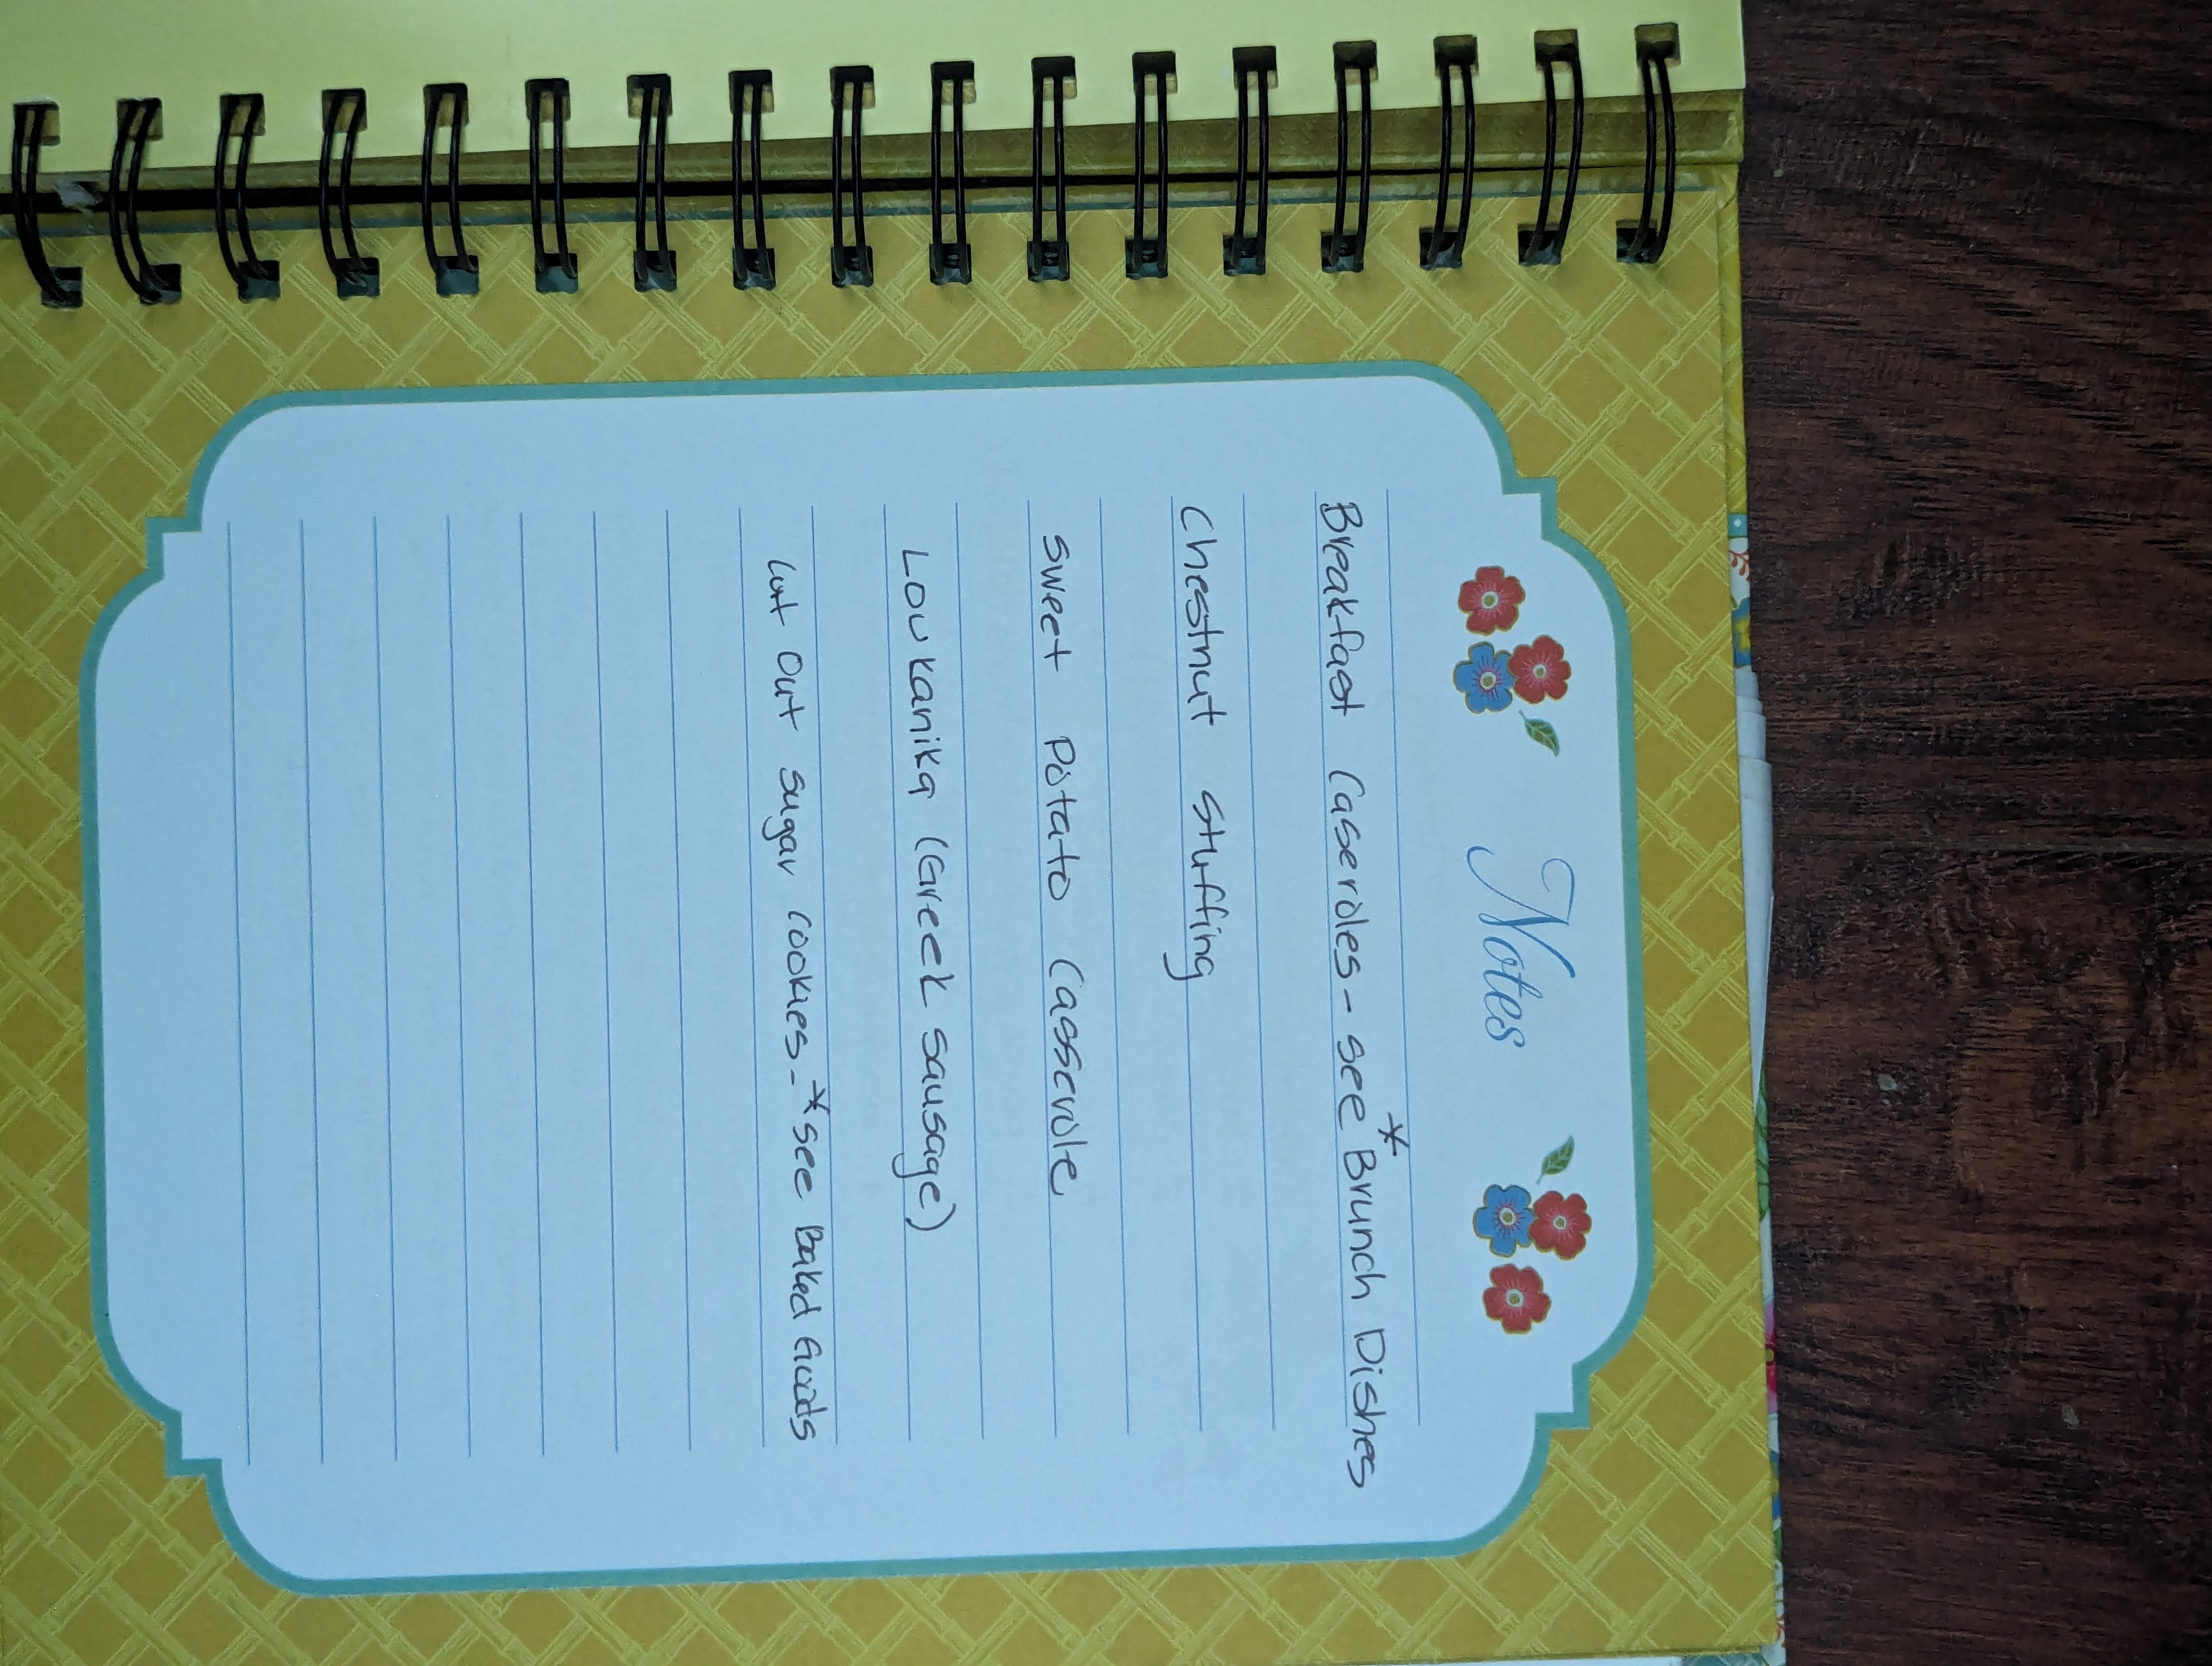 Notes
Breakfast Caseroles - see *Brunch Dishes
Chestnut stuffing
Sweet Potato Casserole
Loukanika (Greek sausage)
Cut Out sugar cookies - *see Baked Goods